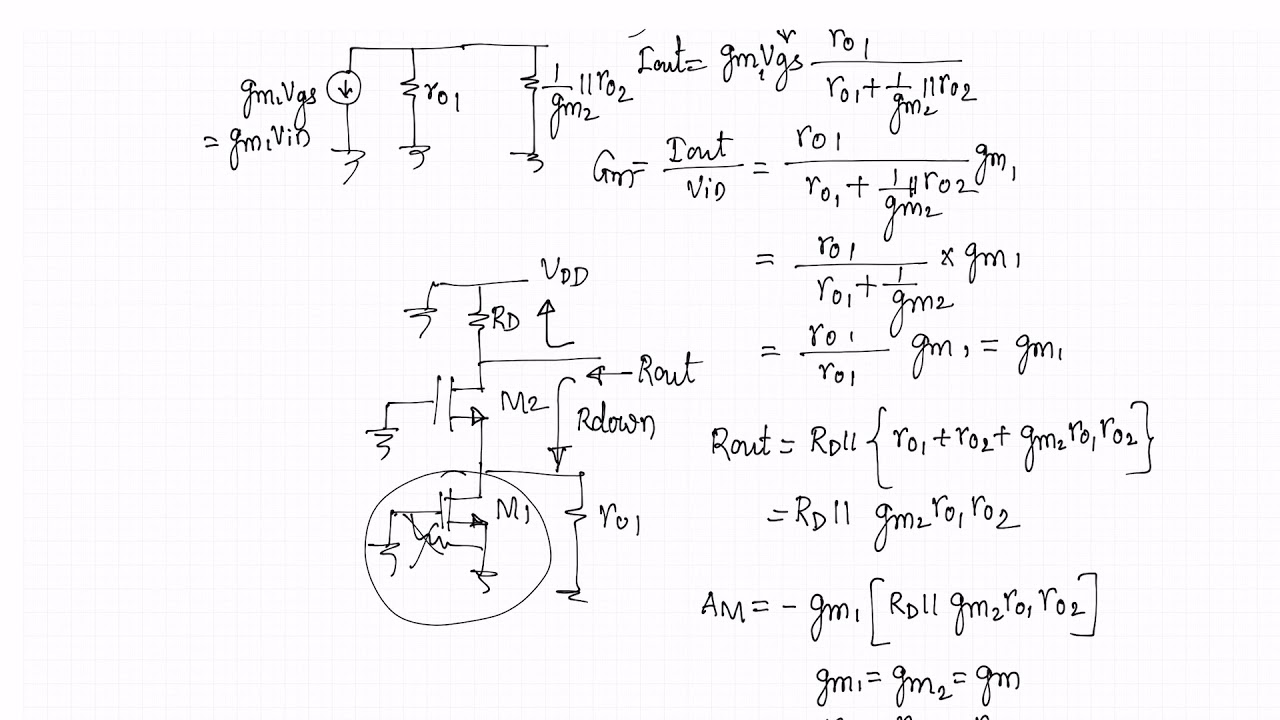 gm₁Vgs
= gm₁Vin
ro₁
1/gm₂ || ro₂
Iout = gm₁Vgs ro₁ / (ro₁ + 1/gm₂ || ro₂)
Gm = Iout/Vin = ro₁ / (ro₁ + 1/gm₂ || ro₂) gm₁
= ro₁ / (ro₁ + 1/gm₂) × gm₁
= ro₁/ro₁ gm₁ = gm₁
VDD
RD
Rout
M2
Rdown
M1
ro₁
Rout = RD || {ro₁ + ro₂ + gm₂ro₁ro₂}
= RD || gm₂ro₁ro₂
AM = - gm₁ [RD || gm₂ro₁ro₂]
gm₁ = gm₂ = gm